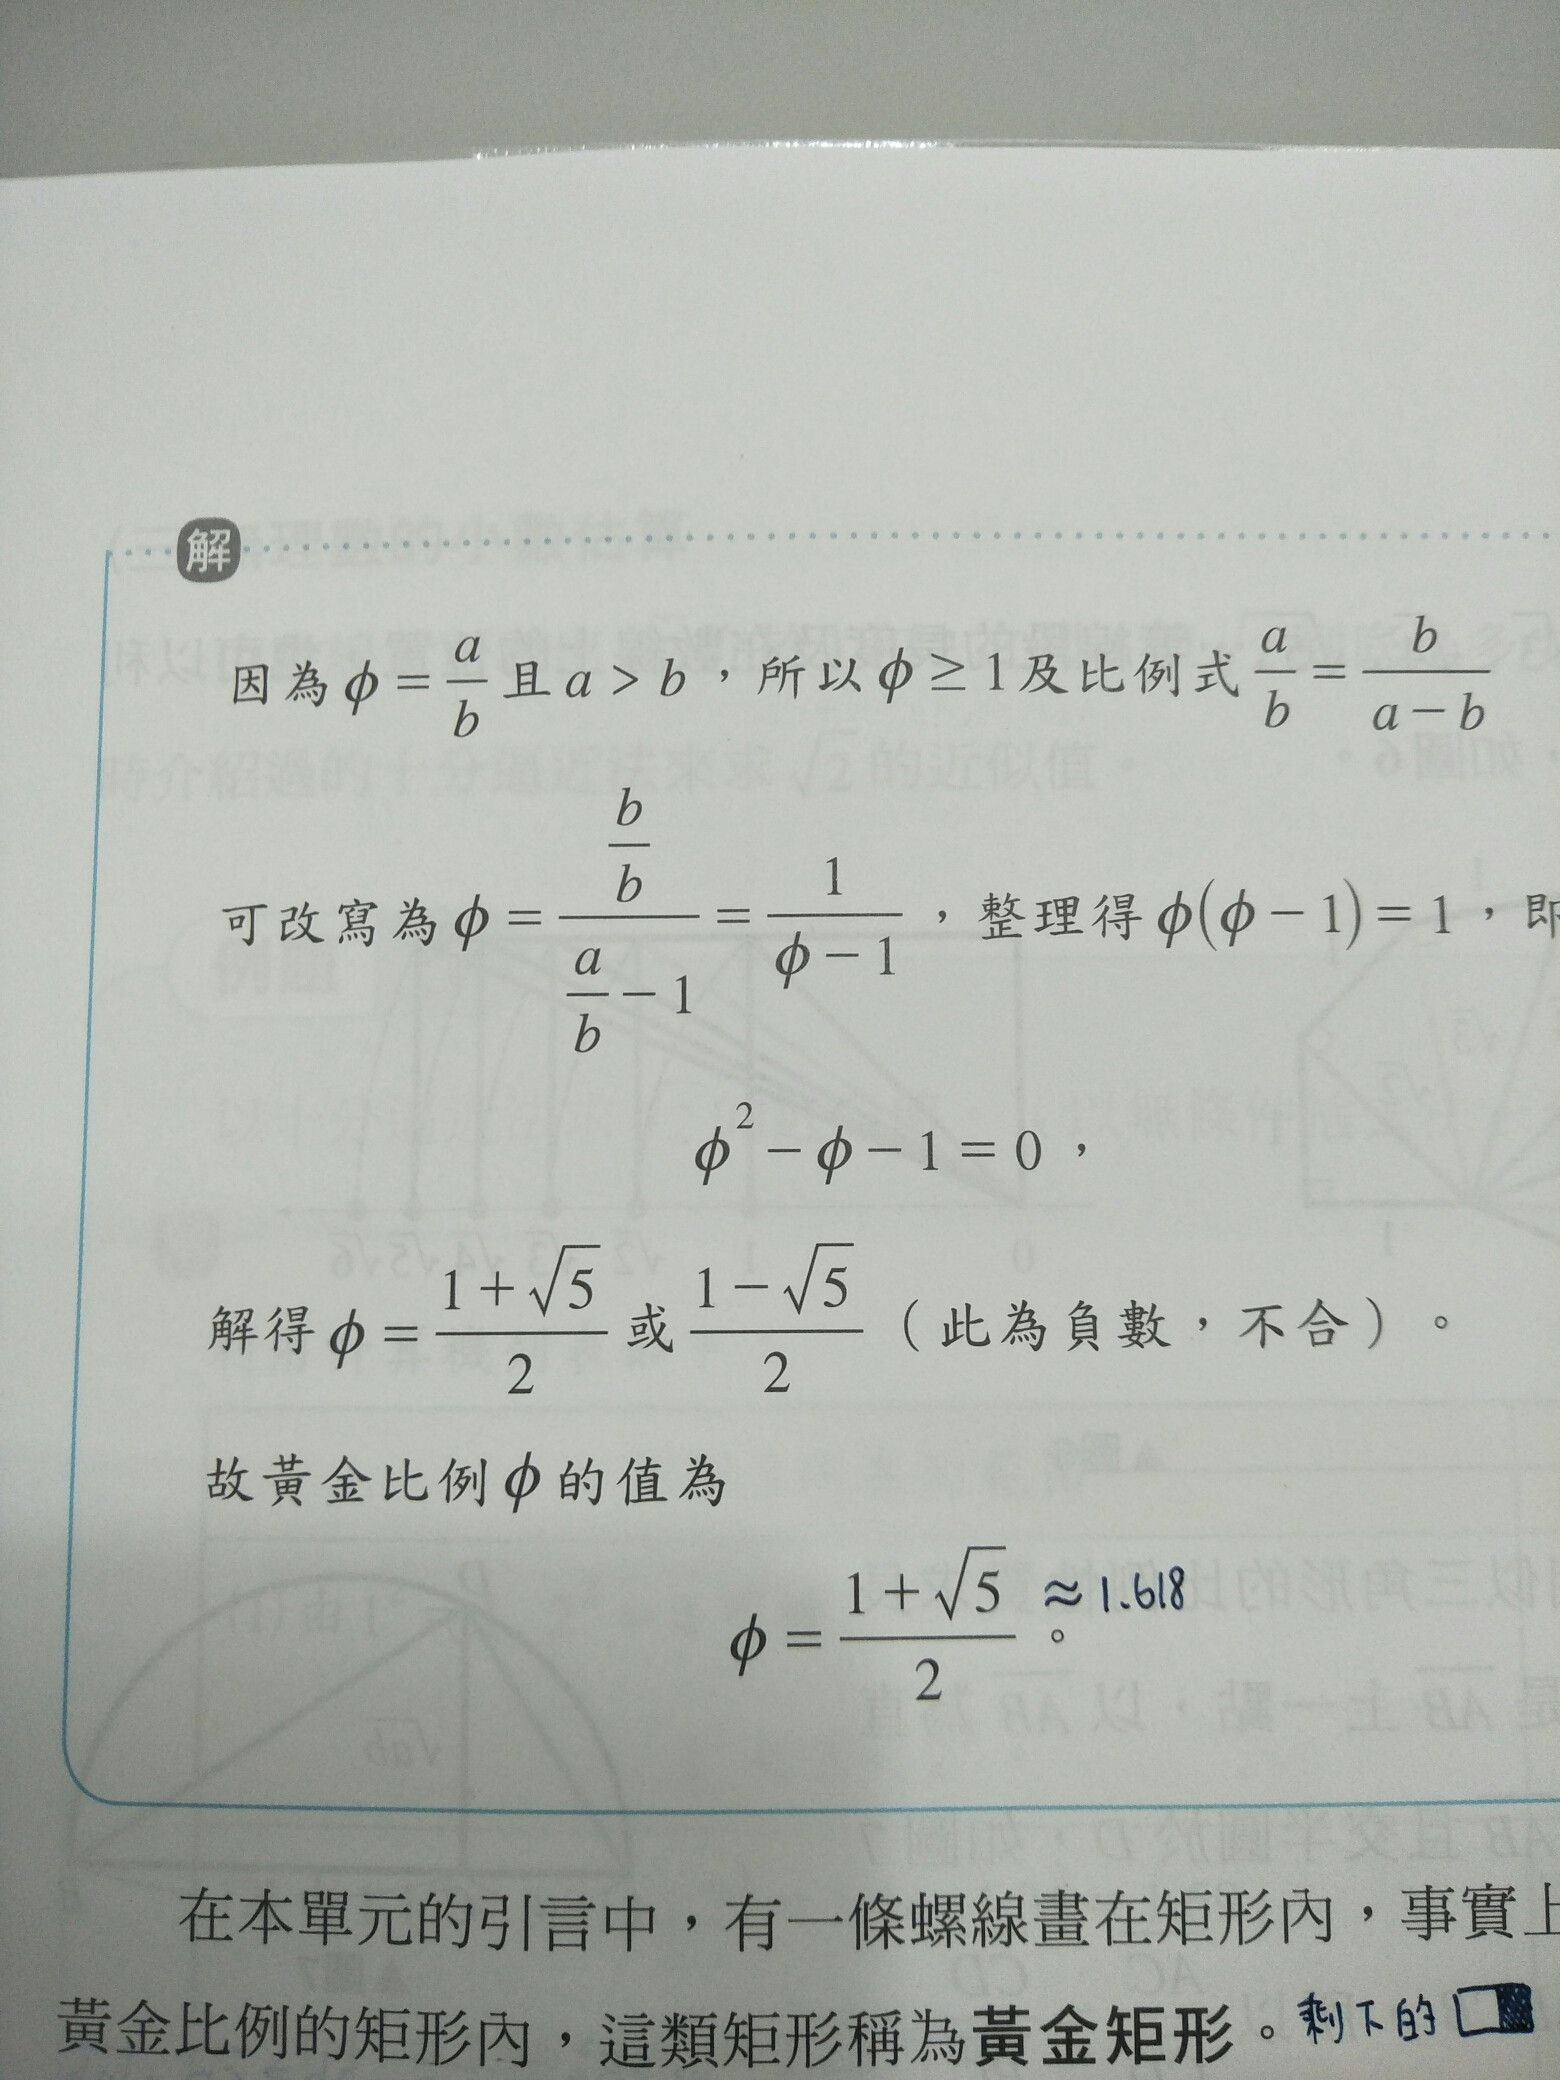 解
因為 ϕ = a/b 且 a > b，所以 ϕ ≥ 1 及比例式 a/b = b/(a − b)
可改寫為 ϕ = (b/b)/(a/b − 1) = 1/(ϕ − 1)，整理得 ϕ(ϕ − 1) = 1，即
ϕ² − ϕ − 1 = 0，
解得 ϕ = (1 + √5)/2 或 (1 − √5)/2（此為負數，不合）。
故黃金比例 ϕ 的值為
ϕ = (1 + √5)/2。≈ 1.618
在本單元的引言中，有一條螺線畫在矩形內，事實上
黃金比例的矩形內，這類矩形稱為黃金矩形。剩下的